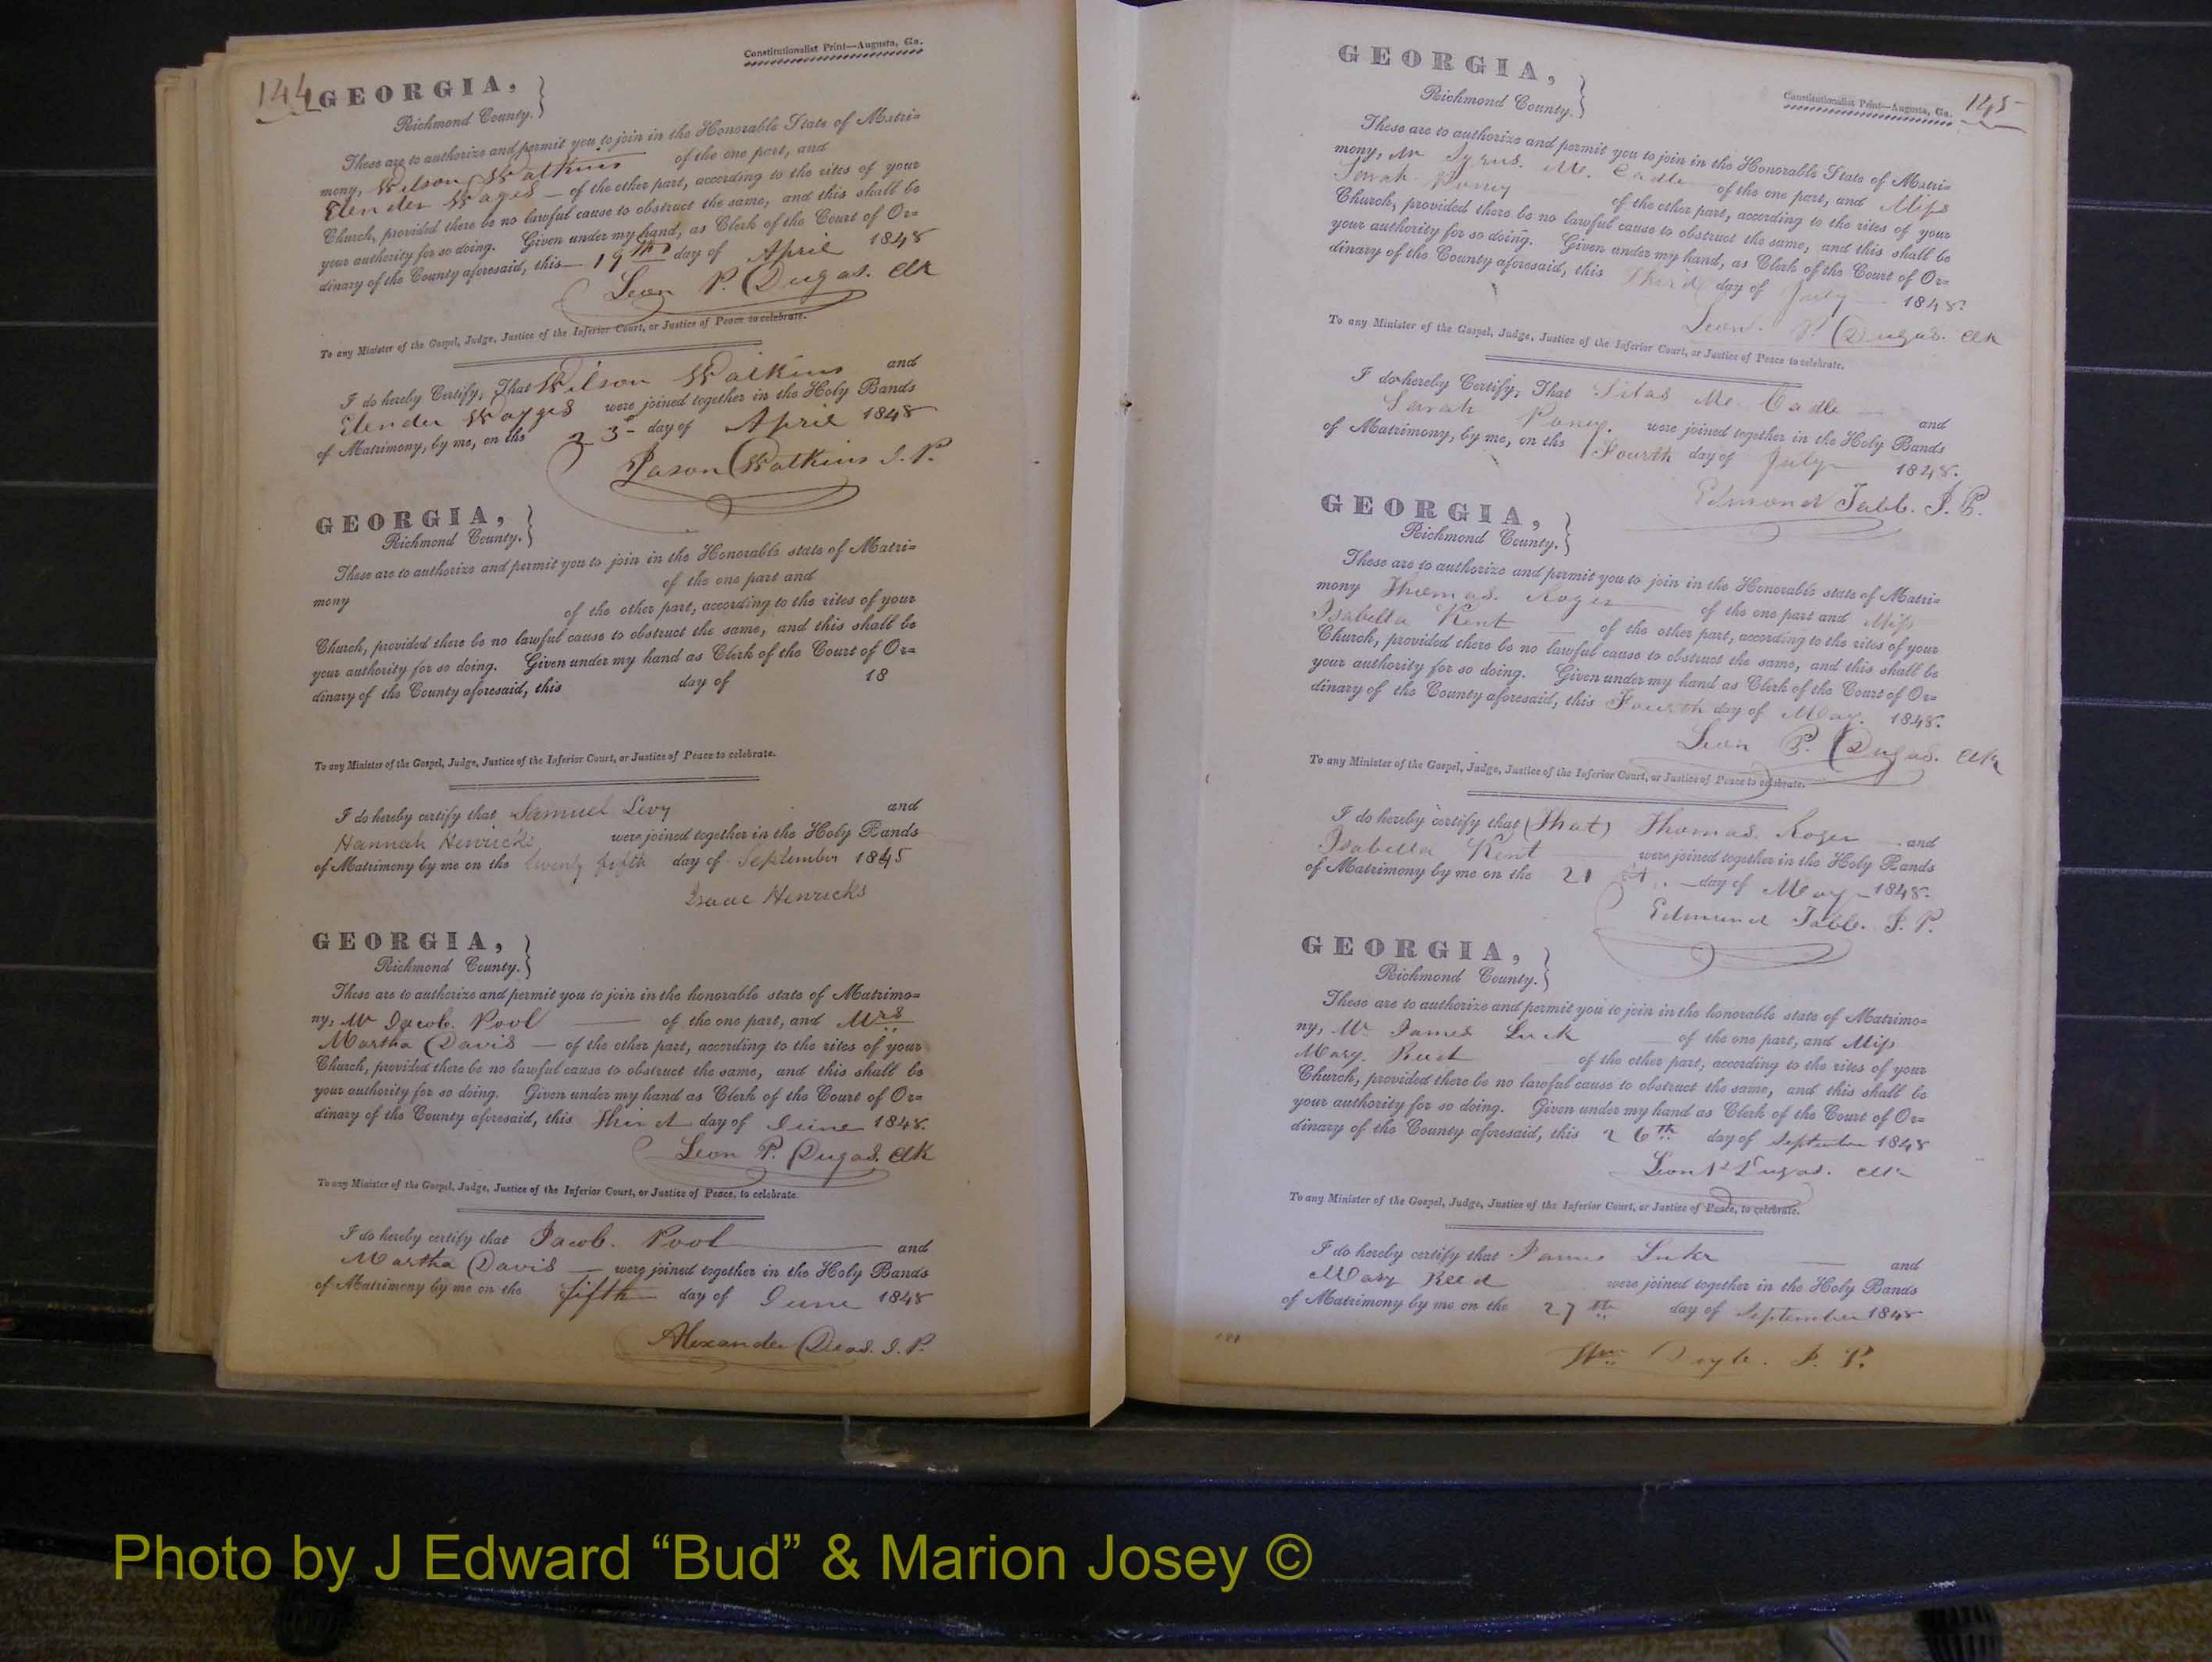 144
Constitutionalist Print—Augusta, Ga.
GEORGIA, }
Richmond County. }
These are to authorize and permit you to join in the Honorable State of Matri=
mony, Wilson Watkins of the one part, and
Elender Wages — of the other part, according to the rites of your
Church, provided there be no lawful cause to obstruct the same, and this shall be
your authority for so doing. Given under my hand, as Clerk of the Court of Or=
dinary of the County aforesaid, this 19th day of April 1848
Leon P. Dugas. Clk
To any Minister of the Gospel, Judge, Justice of the Inferior Court, or Justice of Peace to celebrate.
I do hereby Certify, That Wilson Watkins and
Elender Wayges were joined together in the Holy Bands
of Matrimony, by me, on the 23 day of April 1848
Jason Watkins J. P.
GEORGIA, }
Richmond County. }
These are to authorize and permit you to join in the Honorable state of Matri=
mony of the one part and
of the other part, according to the rites of your
Church, provided there be no lawful cause to obstruct the same, and this shall be
your authority for so doing. Given under my hand as Clerk of the Court of Or=
dinary of the County aforesaid, this day of 18
To any Minister of the Gospel, Judge, Justice of the Inferior Court, or Justice of Peace to celebrate.
I do hereby certify that Samuel Levy and
Hannah Henricks were joined together in the Holy Bands
of Matrimony by me on the twenty fifth day of September 1845
Isaac Henricks
GEORGIA, }
Richmond County. }
These are to authorize and permit you to join in the honorable state of Matrimo=
ny, Mr Jacob. Pool — of the one part, and Mrs
Martha Davis — of the other part, according to the rites of your
Church, provided there be no lawful cause to obstruct the same, and this shall be
your authority for so doing. Given under my hand as Clerk of the Court of Or=
dinary of the County aforesaid, this Third day of June 1848.
Leon P. Dugas. Clk
To any Minister of the Gospel, Judge, Justice of the Inferior Court, or Justice of Peace, to celebrate.
I do hereby certify that Jacob. Pool and
Martha Davis — were joined together in the Holy Bands
of Matrimony by me on the fifth day of June 1848
Alexander Deas. J. P.
GEORGIA, }
Richmond County. }
Constitutionalist Print—Augusta, Ga. 145
These are to authorize and permit you to join in the Honorable State of Matri=
mony, Mr M. Cadle of the one part, and Miss
Sarah Poney of the other part, according to the rites of your
Church, provided there be no lawful cause to obstruct the same, and this shall be
your authority for so doing. Given under my hand, as Clerk of the Court of Or=
dinary of the County aforesaid, this Third day of July 1848.
Leon. P. Dugas. Clk
To any Minister of the Gospel, Judge, Justice of the Inferior Court, or Justice of Peace to celebrate.
I do hereby Certify, That Silas Mc Cadle and
Sarah Poney. were joined together in the Holy Bands
of Matrimony, by me, on the Fourth day of July 1848.
Edmond Tabb. J. P.
GEORGIA, }
Richmond County. }
These are to authorize and permit you to join in the Honorable state of Matri=
mony Thomas. Roger of the one part and Miss
Isabella Kent — of the other part, according to the rites of your
Church, provided there be no lawful cause to obstruct the same, and this shall be
your authority for so doing. Given under my hand as Clerk of the Court of Or=
dinary of the County aforesaid, this Fourth day of May. 1848.
Leon P. Dugas. Clk
To any Minister of the Gospel, Judge, Justice of the Inferior Court, or Justice of Peace to celebrate.
I do hereby certify that (That) Thomas. Roger and
Isabella Kent were joined together in the Holy Bands
of Matrimony by me on the 21 st day of May 1848.
Edmund Tabb. J. P.
GEORGIA, }
Richmond County. }
These are to authorize and permit you to join in the honorable state of Matrimo=
ny, Mr James Luck of the one part, and Miss
Mary. Reed of the other part, according to the rites of your
Church, provided there be no lawful cause to obstruct the same, and this shall be
your authority for so doing. Given under my hand as Clerk of the Court of Or=
dinary of the County aforesaid, this 26th day of September 1848
Leon P Dugas. Clk
To any Minister of the Gospel, Judge, Justice of the Inferior Court, or Justice of Peace, to celebrate.
I do hereby certify that James Luke and
Mary Reed were joined together in the Holy Bands
of Matrimony by me on the 27th day of September 1848
Wm Doyle. J. P.
Photo by J Edward “Bud” & Marion Josey ©